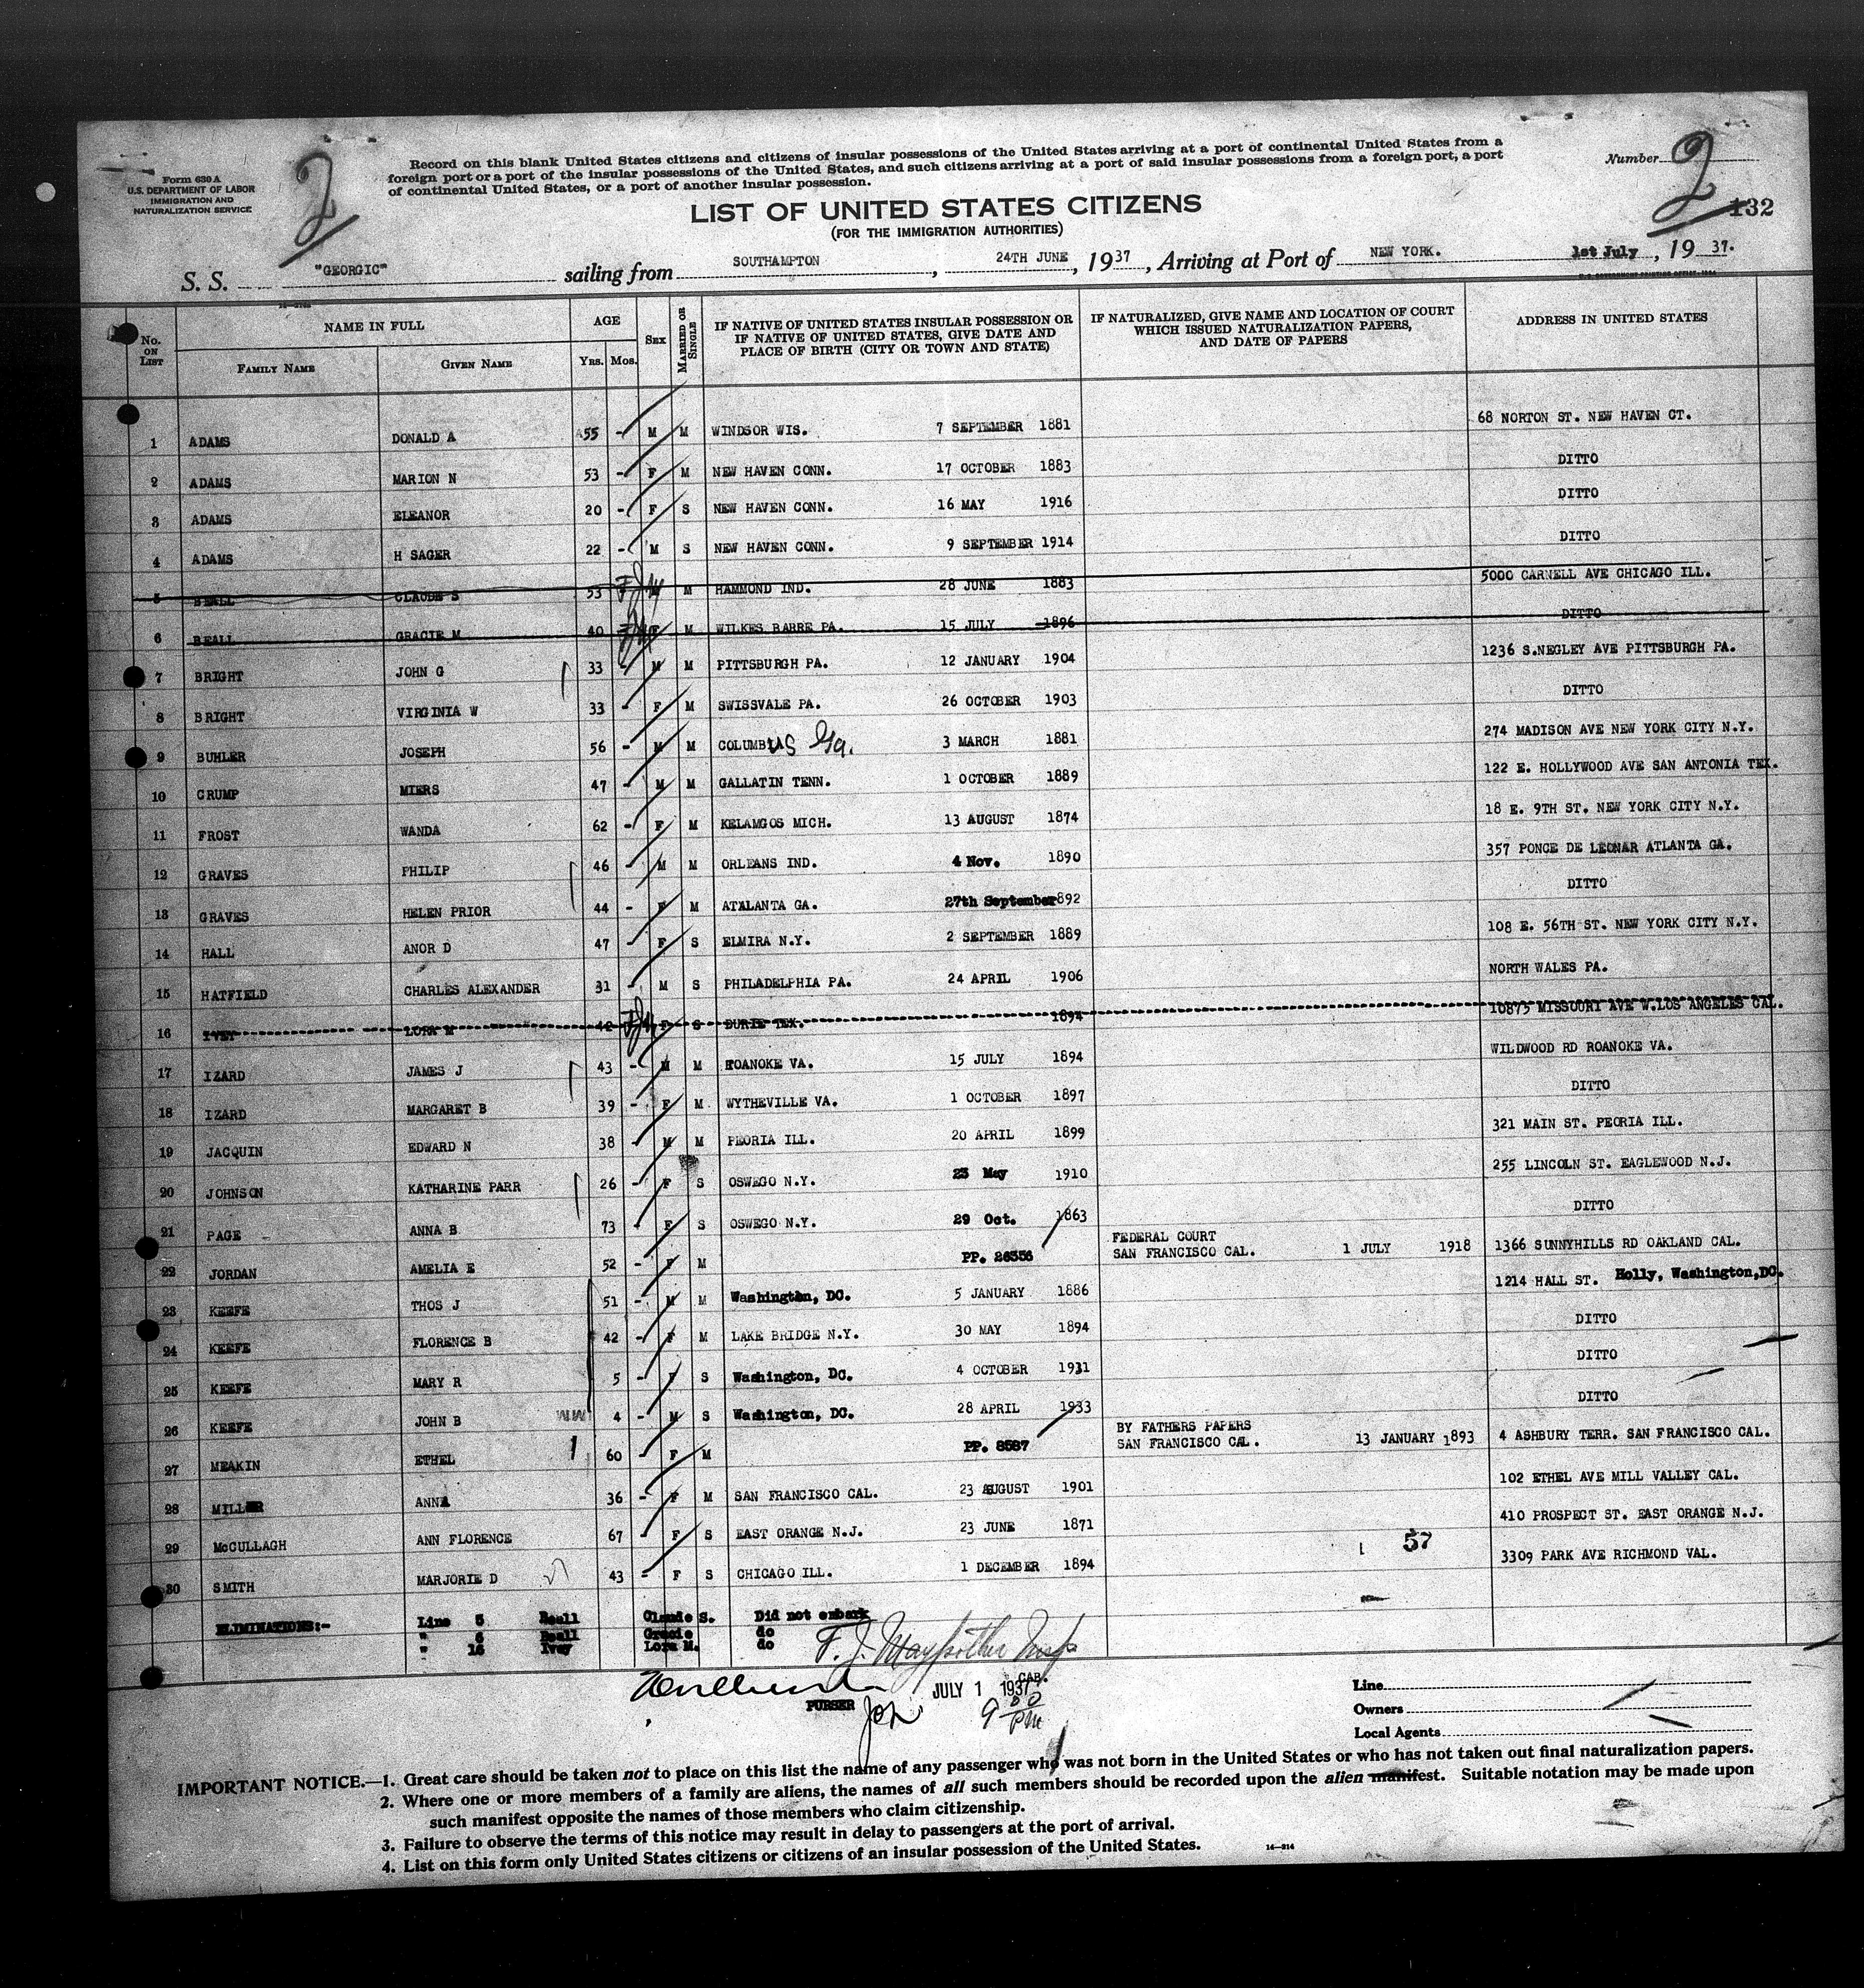 Form 630 A
U.S. DEPARTMENT OF LABOR
IMMIGRATION AND
NATURALIZATION SERVICE
2
Record on this blank United States citizens and citizens of insular possessions of the United States arriving at a port of continental United States from a
foreign port or a port of the insular possessions of the United States, and such citizens arriving at a port of said insular possessions from a foreign port, a port
of continental United States, or a port of another insular possession.
Number 2
132
LIST OF UNITED STATES CITIZENS
(FOR THE IMMIGRATION AUTHORITIES)
S. S. "GEORGIC" sailing from SOUTHAMPTON, 24TH JUNE, 1937, Arriving at Port of NEW YORK. 1st July, 19 37.
No. ON LIST NAME IN FULL FAMILY NAME GIVEN NAME AGE YRS. MOS. SEX MARRIED OR SINGLE IF NATIVE OF UNITED STATES INSULAR POSSESSION OR IF NATIVE OF UNITED STATES, GIVE DATE AND PLACE OF BIRTH (CITY OR TOWN AND STATE) IF NATURALIZED, GIVE NAME AND LOCATION OF COURT WHICH ISSUED NATURALIZATION PAPERS, AND DATE OF PAPERS ADDRESS IN UNITED STATES
1 ADAMS DONALD A 55 - M M WINDSOR WIS. 7 SEPTEMBER 1881 68 NORTON ST. NEW HAVEN CT.
2 ADAMS MARION N 53 - F M NEW HAVEN CONN. 17 OCTOBER 1883 DITTO
3 ADAMS ELEANOR 20 - F S NEW HAVEN CONN. 16 MAY 1916 DITTO
4 ADAMS H SAGER 22 - M S NEW HAVEN CONN. 9 SEPTEMBER 1914 DITTO
5 BEALL CLAUDE S 53 M M HAMMOND IND. 28 JUNE 1883 5000 CARNELL AVE CHICAGO ILL.
6 BEALL GRACIE M 40 F M WILKES BARRE PA. 15 JULY 1896 DITTO
7 BRIGHT JOHN G 33 - M M PITTSBURGH PA. 12 JANUARY 1904 1236 S.NEGLEY AVE PITTSBURGH PA.
8 BRIGHT VIRGINIA W 33 - F M SWISSVALE PA. 26 OCTOBER 1903 DITTO
9 BUHLER JOSEPH 56 - M M COLUMBUS Ga. 3 MARCH 1881 274 MADISON AVE NEW YORK CITY N.Y.
10 CRUMP MIERS 47 - M M GALLATIN TENN. 1 OCTOBER 1889 122 E. HOLLYWOOD AVE SAN ANTONIA TEX.
11 FROST WANDA 62 - F M KELAMGOS MICH. 13 AUGUST 1874 18 E. 9TH ST. NEW YORK CITY N.Y.
12 GRAVES PHILIP 46 - M M ORLEANS IND. 4 Nov. 1890 357 PONCE DE LEONAR ATLANTA GA.
13 GRAVES HELEN PRIOR 44 - F M ATALANTA GA. 27th September 892 DITTO
14 HALL ANOR D 47 - F S ELMIRA N.Y. 2 SEPTEMBER 1889 108 E. 56TH ST. NEW YORK CITY N.Y.
15 HATFIELD CHARLES ALEXANDER 31 - M S PHILADELPHIA PA. 24 APRIL 1906 NORTH WALES PA.
16 IVEY LORA M 42 F S BURIE TEX. 1894 10875 MISSOURI AVE W.LOS ANGELES CAL.
17 IZARD JAMES J 43 - M M ROANOKE VA. 15 JULY 1894 WILDWOOD RD ROANOKE VA.
18 IZARD MARGARET B 39 - F M WYTHEVILLE VA. 1 OCTOBER 1897 DITTO
19 JACQUIN EDWARD N 38 - M M PEORIA ILL. 20 APRIL 1899 321 MAIN ST. PEORIA ILL.
20 JOHNSON KATHARINE PARR 26 - F S OSWEGO N.Y. 23 May 1910 255 LINCOLN ST. EAGLEWOOD N.J.
21 PAGE ANNA B 73 - F S OSWEGO N.Y. 29 Oct. 1863 DITTO
22 JORDAN AMELIA E 52 - F M PP. 26356 FEDERAL COURT SAN FRANCISCO CAL. 1 JULY 1918 1366 SUNNYHILLS RD OAKLAND CAL.
23 KEEFE THOS J 51 - M M Washington, DC. 5 JANUARY 1886 1214 HALL ST. Holly, Washington,DC.
24 KEEFE FLORENCE B 42 - F M LAKE BRIDGE N.Y. 30 MAY 1894 DITTO
25 KEEFE MARY R 5 - F S Washington, DC. 4 OCTOBER 1931 DITTO
26 KEEFE JOHN B 4 - M S Washington, DC. 28 APRIL 1933 DITTO
27 MEAKIN ETHEL 60 - F M PP. 8587 BY FATHERS PAPERS SAN FRANCISCO CAL. 13 JANUARY 1893 4 ASHBURY TERR. SAN FRANCISCO CAL.
28 MILLER ANNA 36 - F M SAN FRANCISCO CAL. 23 AUGUST 1901 102 ETHEL AVE MILL VALLEY CAL.
29 McCULLAGH ANN FLORENCE 67 - F S EAST ORANGE N.J. 23 JUNE 1871 410 PROSPECT ST. EAST ORANGE N.J.
30 SMITH MARJORIE D 43 - F S CHICAGO ILL. 1 DECEMBER 1894 3309 PARK AVE RICHMOND VAL.
57
ELIMINATIONS:- Line 5 Beall Claude S. Did not embark
" 6 Beall Gracie do
" 16 Ivey Lora M. do
PURSER
JULY 1 1937
CAB.
9 00 PM
Line
Owners
Local Agents
IMPORTANT NOTICE.—1. Great care should be taken not to place on this list the name of any passenger who was not born in the United States or who has not taken out final naturalization papers.
2. Where one or more members of a family are aliens, the names of all such members should be recorded upon the alien manifest. Suitable notation may be made upon
such manifest opposite the names of those members who claim citizenship.
3. Failure to observe the terms of this notice may result in delay to passengers at the port of arrival.
4. List on this form only United States citizens or citizens of an insular possession of the United States.
14—214